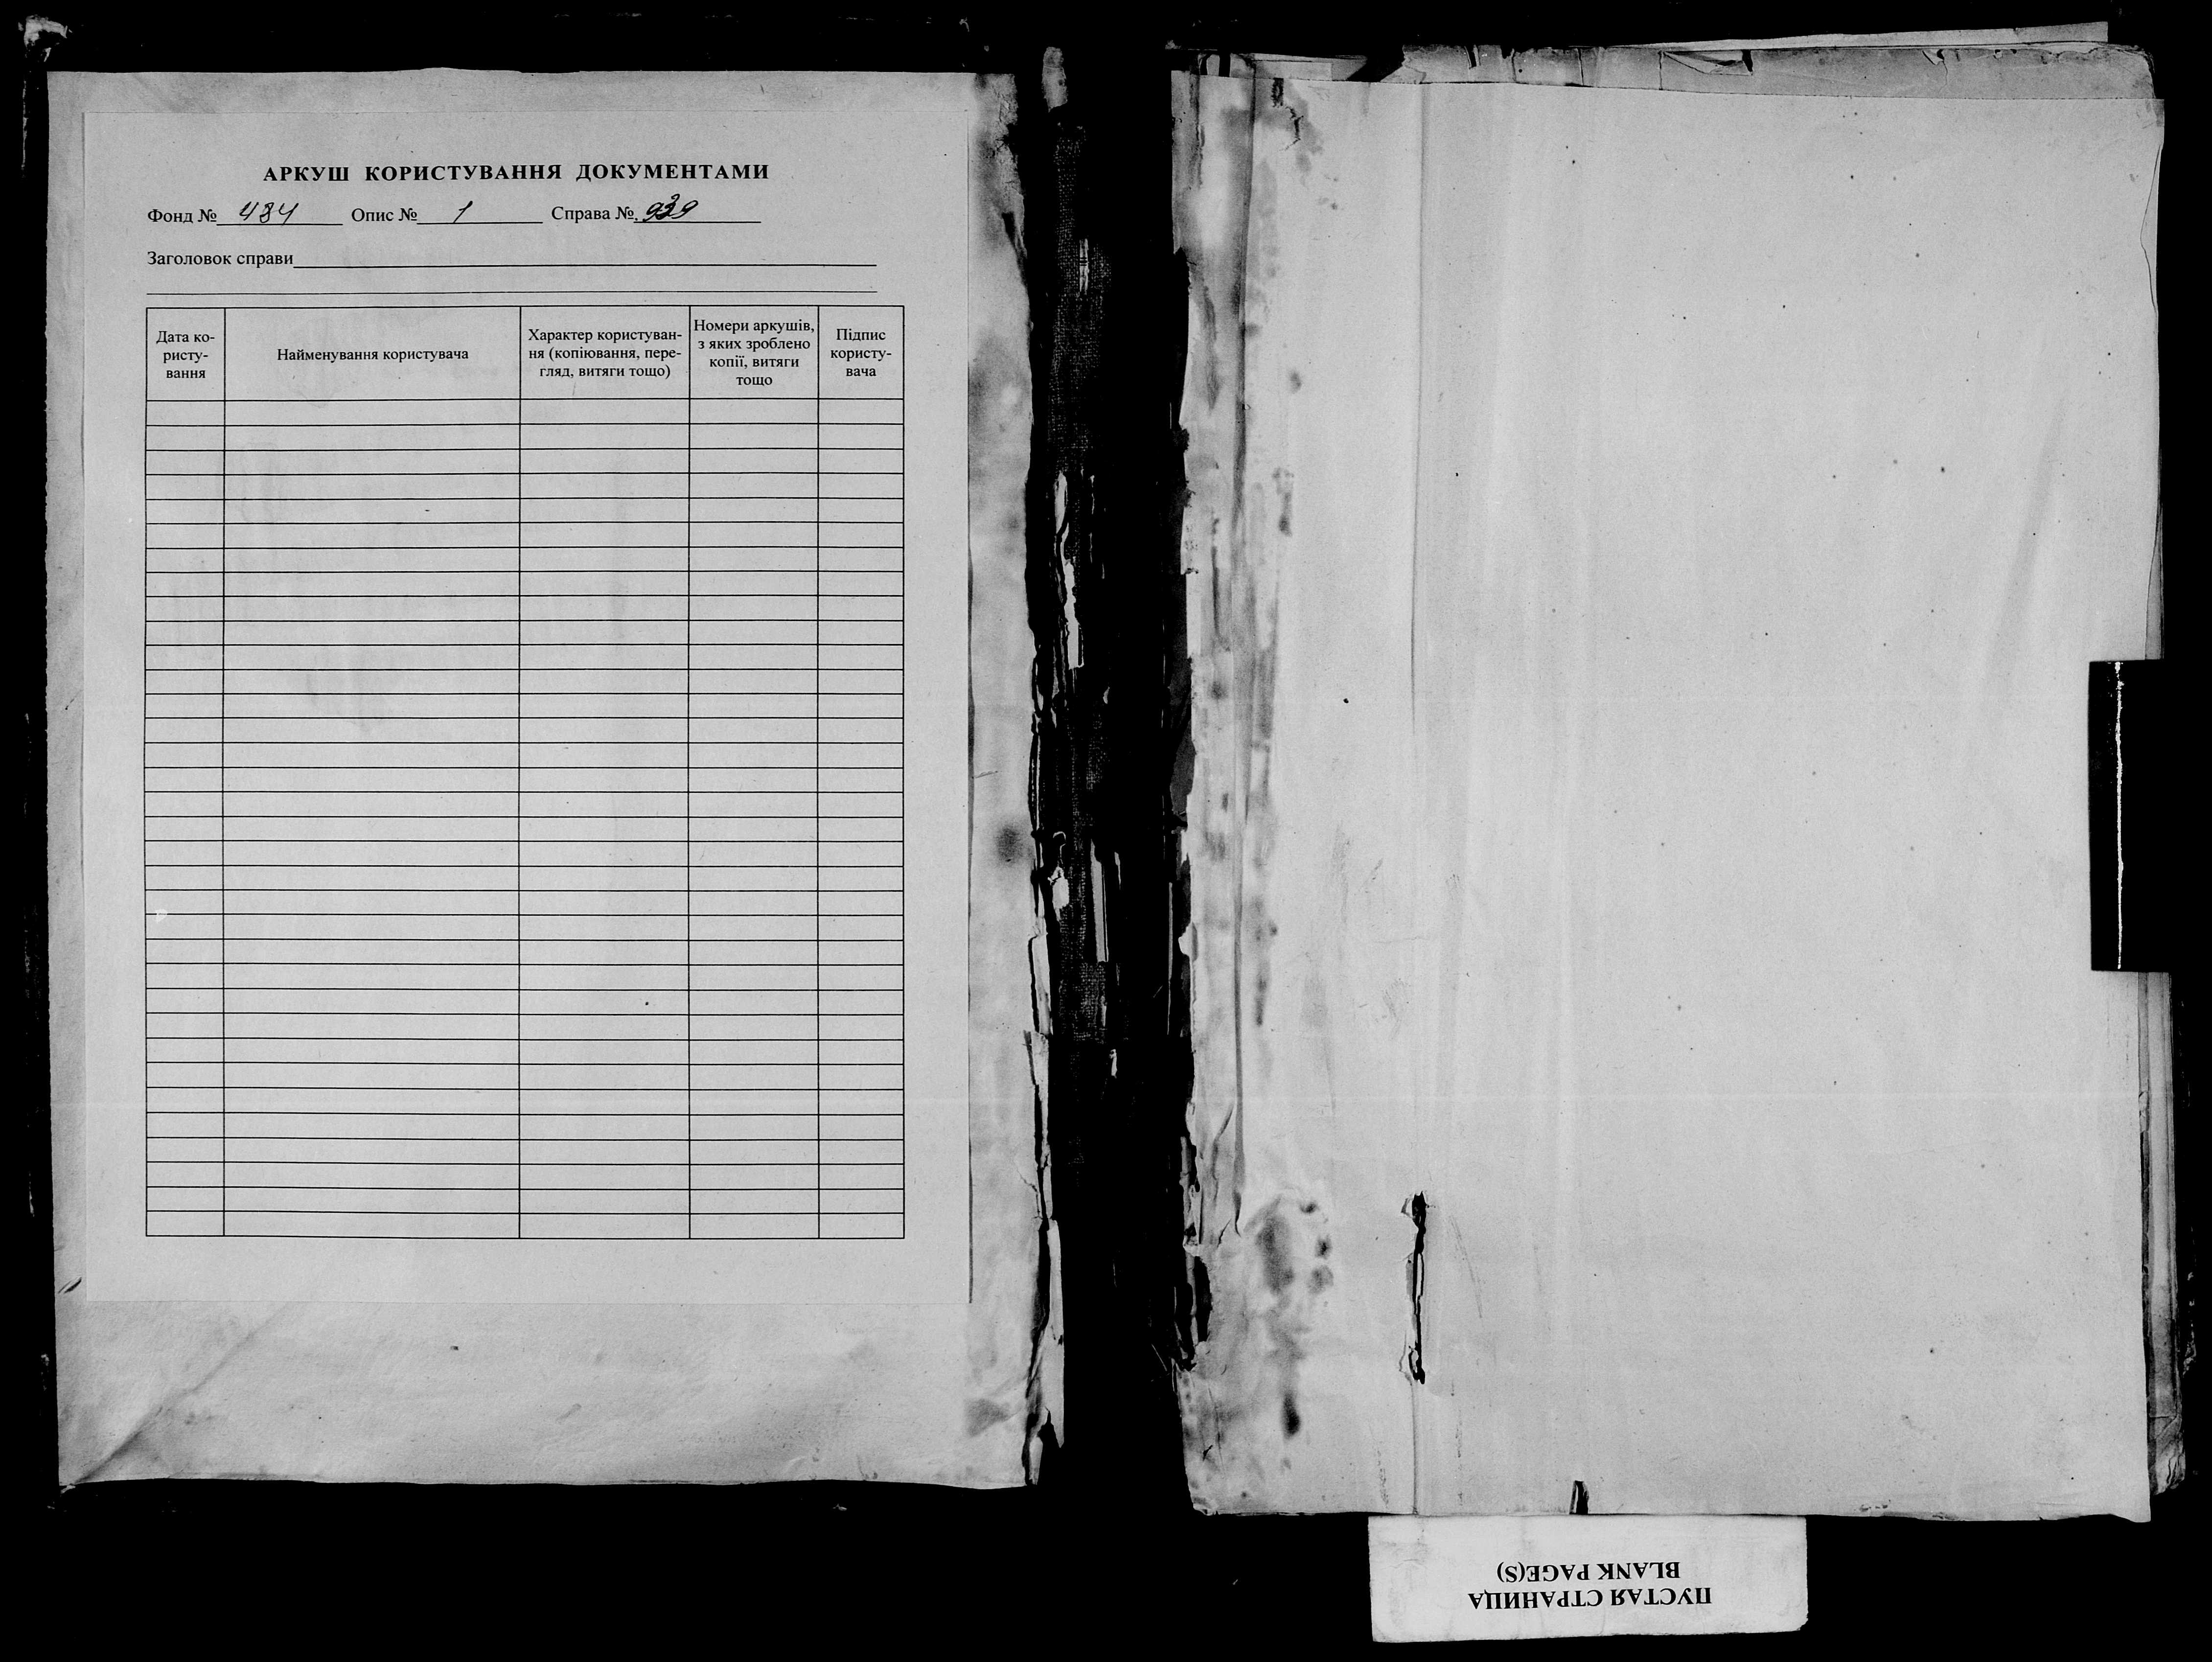 АРКУШ КОРИСТУВАННЯ ДОКУМЕНТАМИ
Фонд № 484 Опис № 1 Справа № 939
Заголовок справи
Дата ко-
ристу-
вання
Найменування користувача
Характер користуван-
ня (копіювання, пере-
гляд, витяги тощо)
Номери аркушів,
з яких зроблено
копії, витяги
тощо
Підпис
користу-
вача
ПУСТАЯ СТРАНИЦА
BLANK PAGE(S)